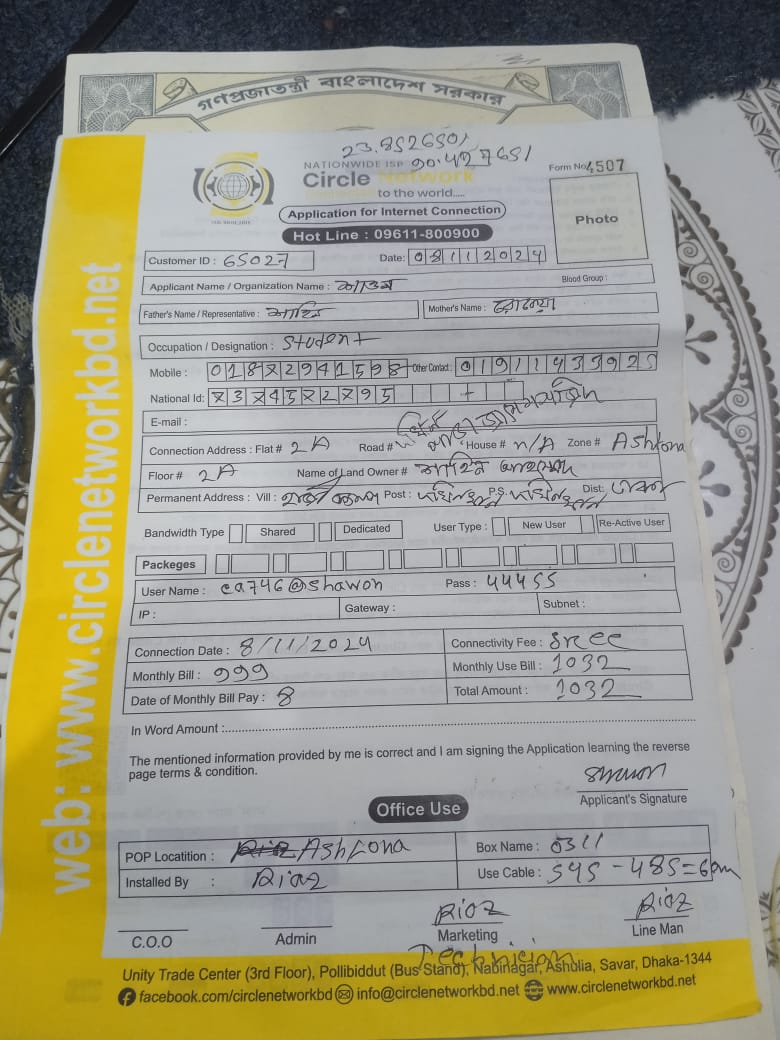 গণপ্রজাতন্ত্রী বাংলাদেশ সরকার
23.8526501
90.427651
NATIONWIDE ISP
Form No 4507
Circle Network
to the world.....
Application for Internet Connection
Photo
Hot Line : 09611-800900
Customer ID : 65027 Date: 08112024
Applicant Name / Organization Name : Blood Group :
Father's Name / Representative : Mother's Name :
Occupation / Designation : Student
Mobile : Other Contact :
National Id:
E-mail :
Connection Address : Flat # 2A Road # House # n/A Zone # Ashkona
Floor # 2A Name of Land Owner #
Permanent Address : Vill : Post : P.S. Dist: ঢাকা
Bandwidth Type Shared Dedicated User Type : New User Re-Active User
Packeges
User Name : ca746@shawon Pass : 44455
IP : Gateway : Subnet :
Connection Date : 8/11/2024 Connectivity Fee : free
Monthly Bill : 999 Monthly Use Bill : 1032
Date of Monthly Bill Pay : 8 Total Amount : 1032
In Word Amount :
The mentioned information provided by me is correct and I am signing the Application learning the reverse
page terms & condition.
Shawon
Applicant's Signature
Office Use
POP Locatition : Ashkona Box Name : 0311
Installed By : Riaz Use Cable : 545 - 485 = 60m
Riaz Riaz
C.O.O Admin Marketing Line Man
Technician
Unity Trade Center (3rd Floor), Pollibiddut (Bus Stand), Nabinagar, Ashulia, Savar, Dhaka-1344
facebook.com/circlenetworkbd info@circlenetworkbd.net www.circlenetworkbd.net
web: www.circlenetworkbd.net